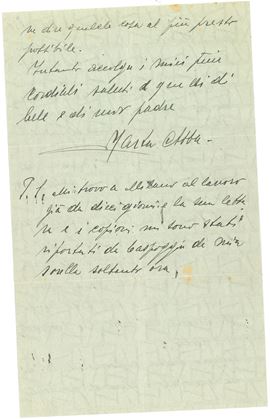 qualche cosa al più presto
possibile.
Intanto accolga i miei più
cordiali saluti e quelli di
e di mio padre
Marta Abba -
P.S. mi trovo a Milano al lavoro
già da dieci giorni e la sua lette
ra e i copioni mi sono stati
riportati da Caspoggio da mia
sorella soltanto ora.